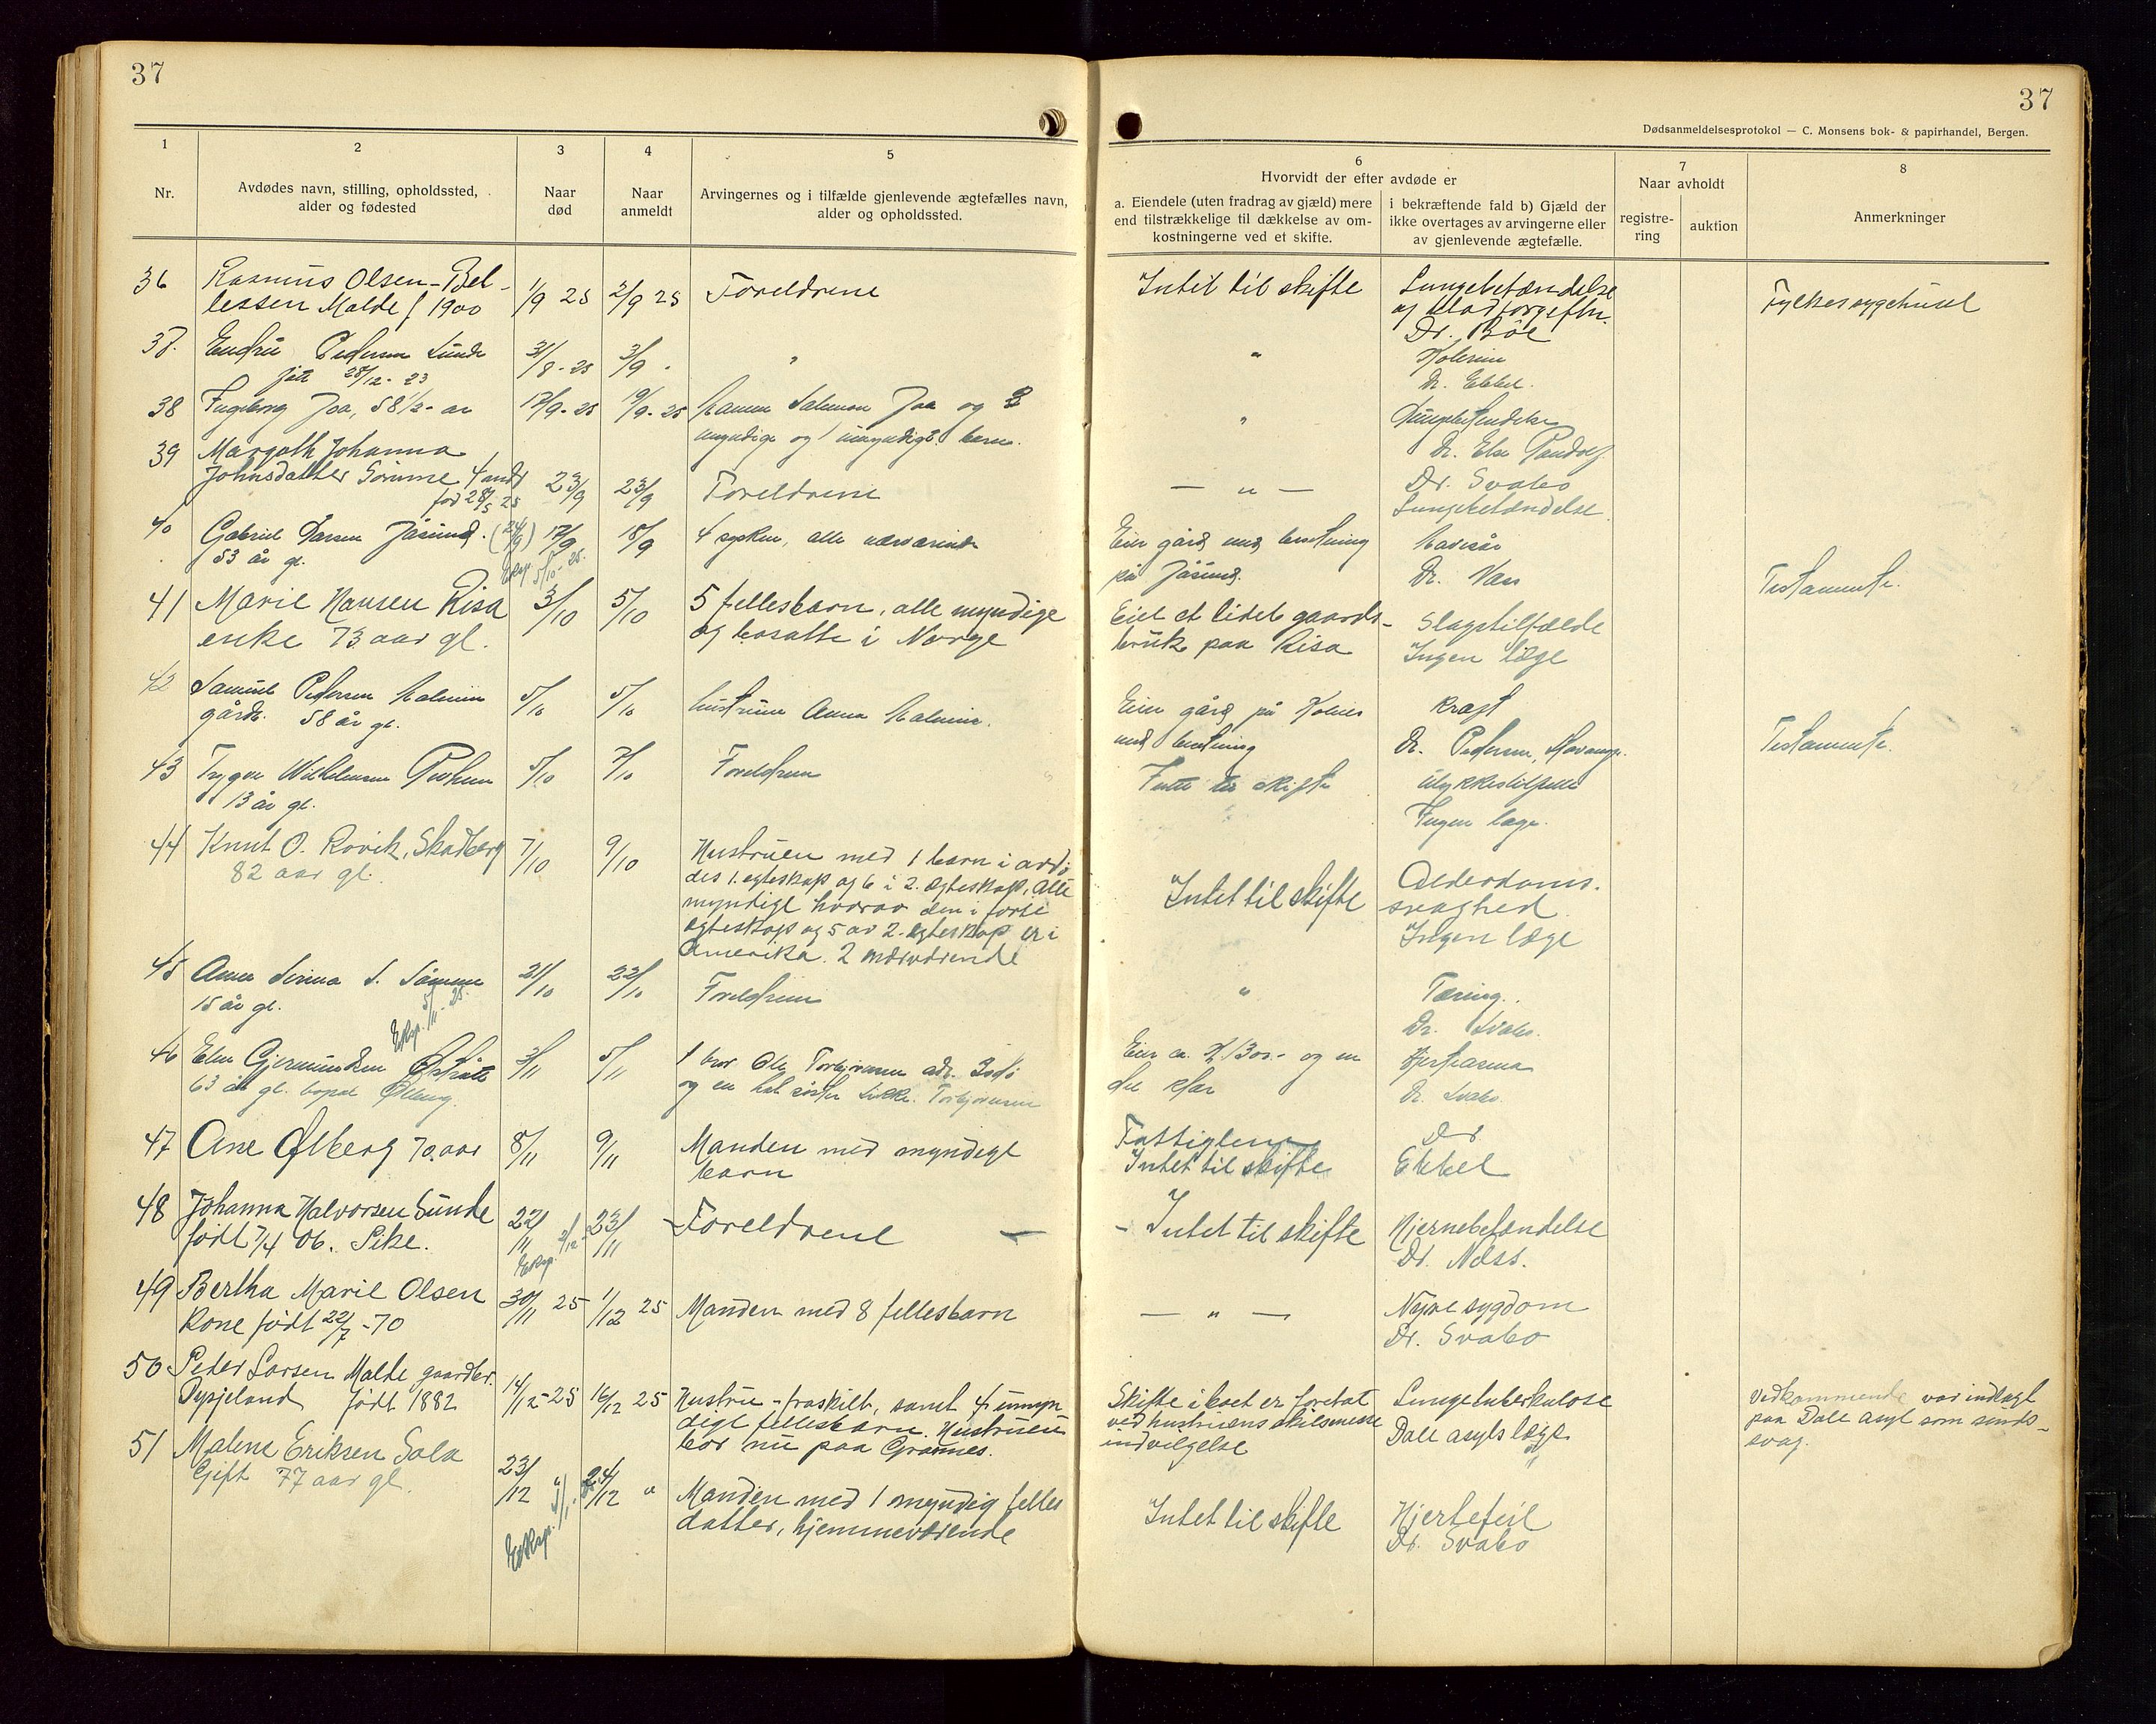 37
37
Dødsanmeldelsesprotokol — C. Monsens bok- & papirhandel, Bergen.
1
Nr.
2
Avdødes navn, stilling, opholdssted,
alder og fødested
3
Naar
død
4
Naar
anmeldt
5
Arvingernes og i tilfælde gjenlevende ægtefælles navn,
alder og opholdssted.
6
Hvorvidt der efter avdøde er
a. Eiendele (uten fradrag av gjæld) mere
end tilstrækkelige til dækkelse av om-
kostningerne ved et skifte.
i bekræftende fald b) Gjæld der
ikke overtages av arvingerne eller
av gjenlevende ægtefælle.
7
Naar avholdt
registre-
ring
auktion
8
Anmerkninger
36
Rasmus Olsen-
Malde f 1900
1/9 25
2/9 25
Foreldrene
Intet til skifte
Lungebetændelse
og
Dr. Böe
Fylkessygehuset
37.
Pedersen Sunde
28/12 - 23
31/8 - 25
3/9 -
"
"
Kolerine
Dr. Ebbel.
38
Ingeborg Joa, 58 1/2 - år
17/9 - 25
19/9 - 25
Salomon Joa og
myndige og 1 umyndigt barn.
"
Dr. Else
39
Margoth Johanna
Johnsdatter Sömme 4 mndr
23/9
23/9
Foreldrene
— " —
Dr. Svabo
Lungebetændelse
40
Gabriel Larsen Jåsund.
53 år gl.
17/9
18/9
4 sysken, alle nærværende
Eier gård med besetning
på Jåsund.
Mavesår
Dr.
Testamente.
Eksp. 5/10 - 25.
41
Marie Hansen Risa
enke 73 aar gl.
3/10
5/10
5 fellesbarn, alle myndige
og bosatte i Norge
Eiet et lidet gaards-
bruk paa Risa
Slagtilfælde
Ingen læge
42
Samuel Pedersen Malmin
gårdb. 58 år gl.
5/10
5/10
hustruen Anna Malmin.
Eier gård på
med besetning
Kræft
Dr. Pedersen, Stavanger.
Testamente.
43
Trygve Wilhelmsen
13 år gl.
5/10
7/10
Foreldrene
Intet til skifte
Ulykkestilfelle
Ingen læge.
44
Knut O. Rovik, Skadberg
82 aar gl.
7/10
9/10
Hustruen med 1 barn i avdö-
des 1. egteskap og 6 i 2. egteskap. Alle
myndige hvorav den i förste
egteskap og 5 av 2. egteskap er i
Amerika. 2 nærværende
Intet til skifte
Alderdoms-
svaghed.
Ingen læge
45
Anna Serina S. Sömme
15 år gl.
21/10
22/10
Foreldrene
"
Tæring.
Dr. Svabo.
46
Elen Gjermundsen
63 år gl. bopæl
3/11
5/11
1 bror Ole Torbjørnsen adr. Bodö
og en halvsöster Torbjørnsen
Eier ca. Kr. 1300.- og en
del klær
Dr. Svabo.
47
Ane Ølberg 70. aar
8/11
9/11
Manden med myndige
barn
Intet til skifte
Dr.
Ebbel
48
Johanna Halvorsen Sunde
født 7/4 06. Pike.
22/11
23/11
Foreldrene —
- Intet til skifte
Hjernebetændelse
Dr. Næss.
Eksp. 2/12
49
Bertha Marie Olsen
Kone født 22/7 -70
30/11 25
1/12 25
Manden med 8 fellesbarn
— " —
Nyre sygdom
Dr. Svabo
50
Peder Larsen Malde gaardbr.
Dysjeland født 1882
14/12 - 25
16/12 25
Hustru - fraskilt, samt 4 umyn
dige fellesbarn. Hustruen
bor nu paa Grannes.
Skifte i boet er foretat
ved hustruens skilsmisse
indvilgelse
Lungetuberkulose
Dale asyls læge
Vedkommende var indlagt
paa Dale asyl som sinds-
svag.
51
Malene Eriksen Sola
Gift 77 aar gl.
23/12 "
24/12 "
Manden med 1 myndig felles
datter, hjemmeværende
Intet til skifte
Hjertefeil
Dr. Svabo
Eksp.